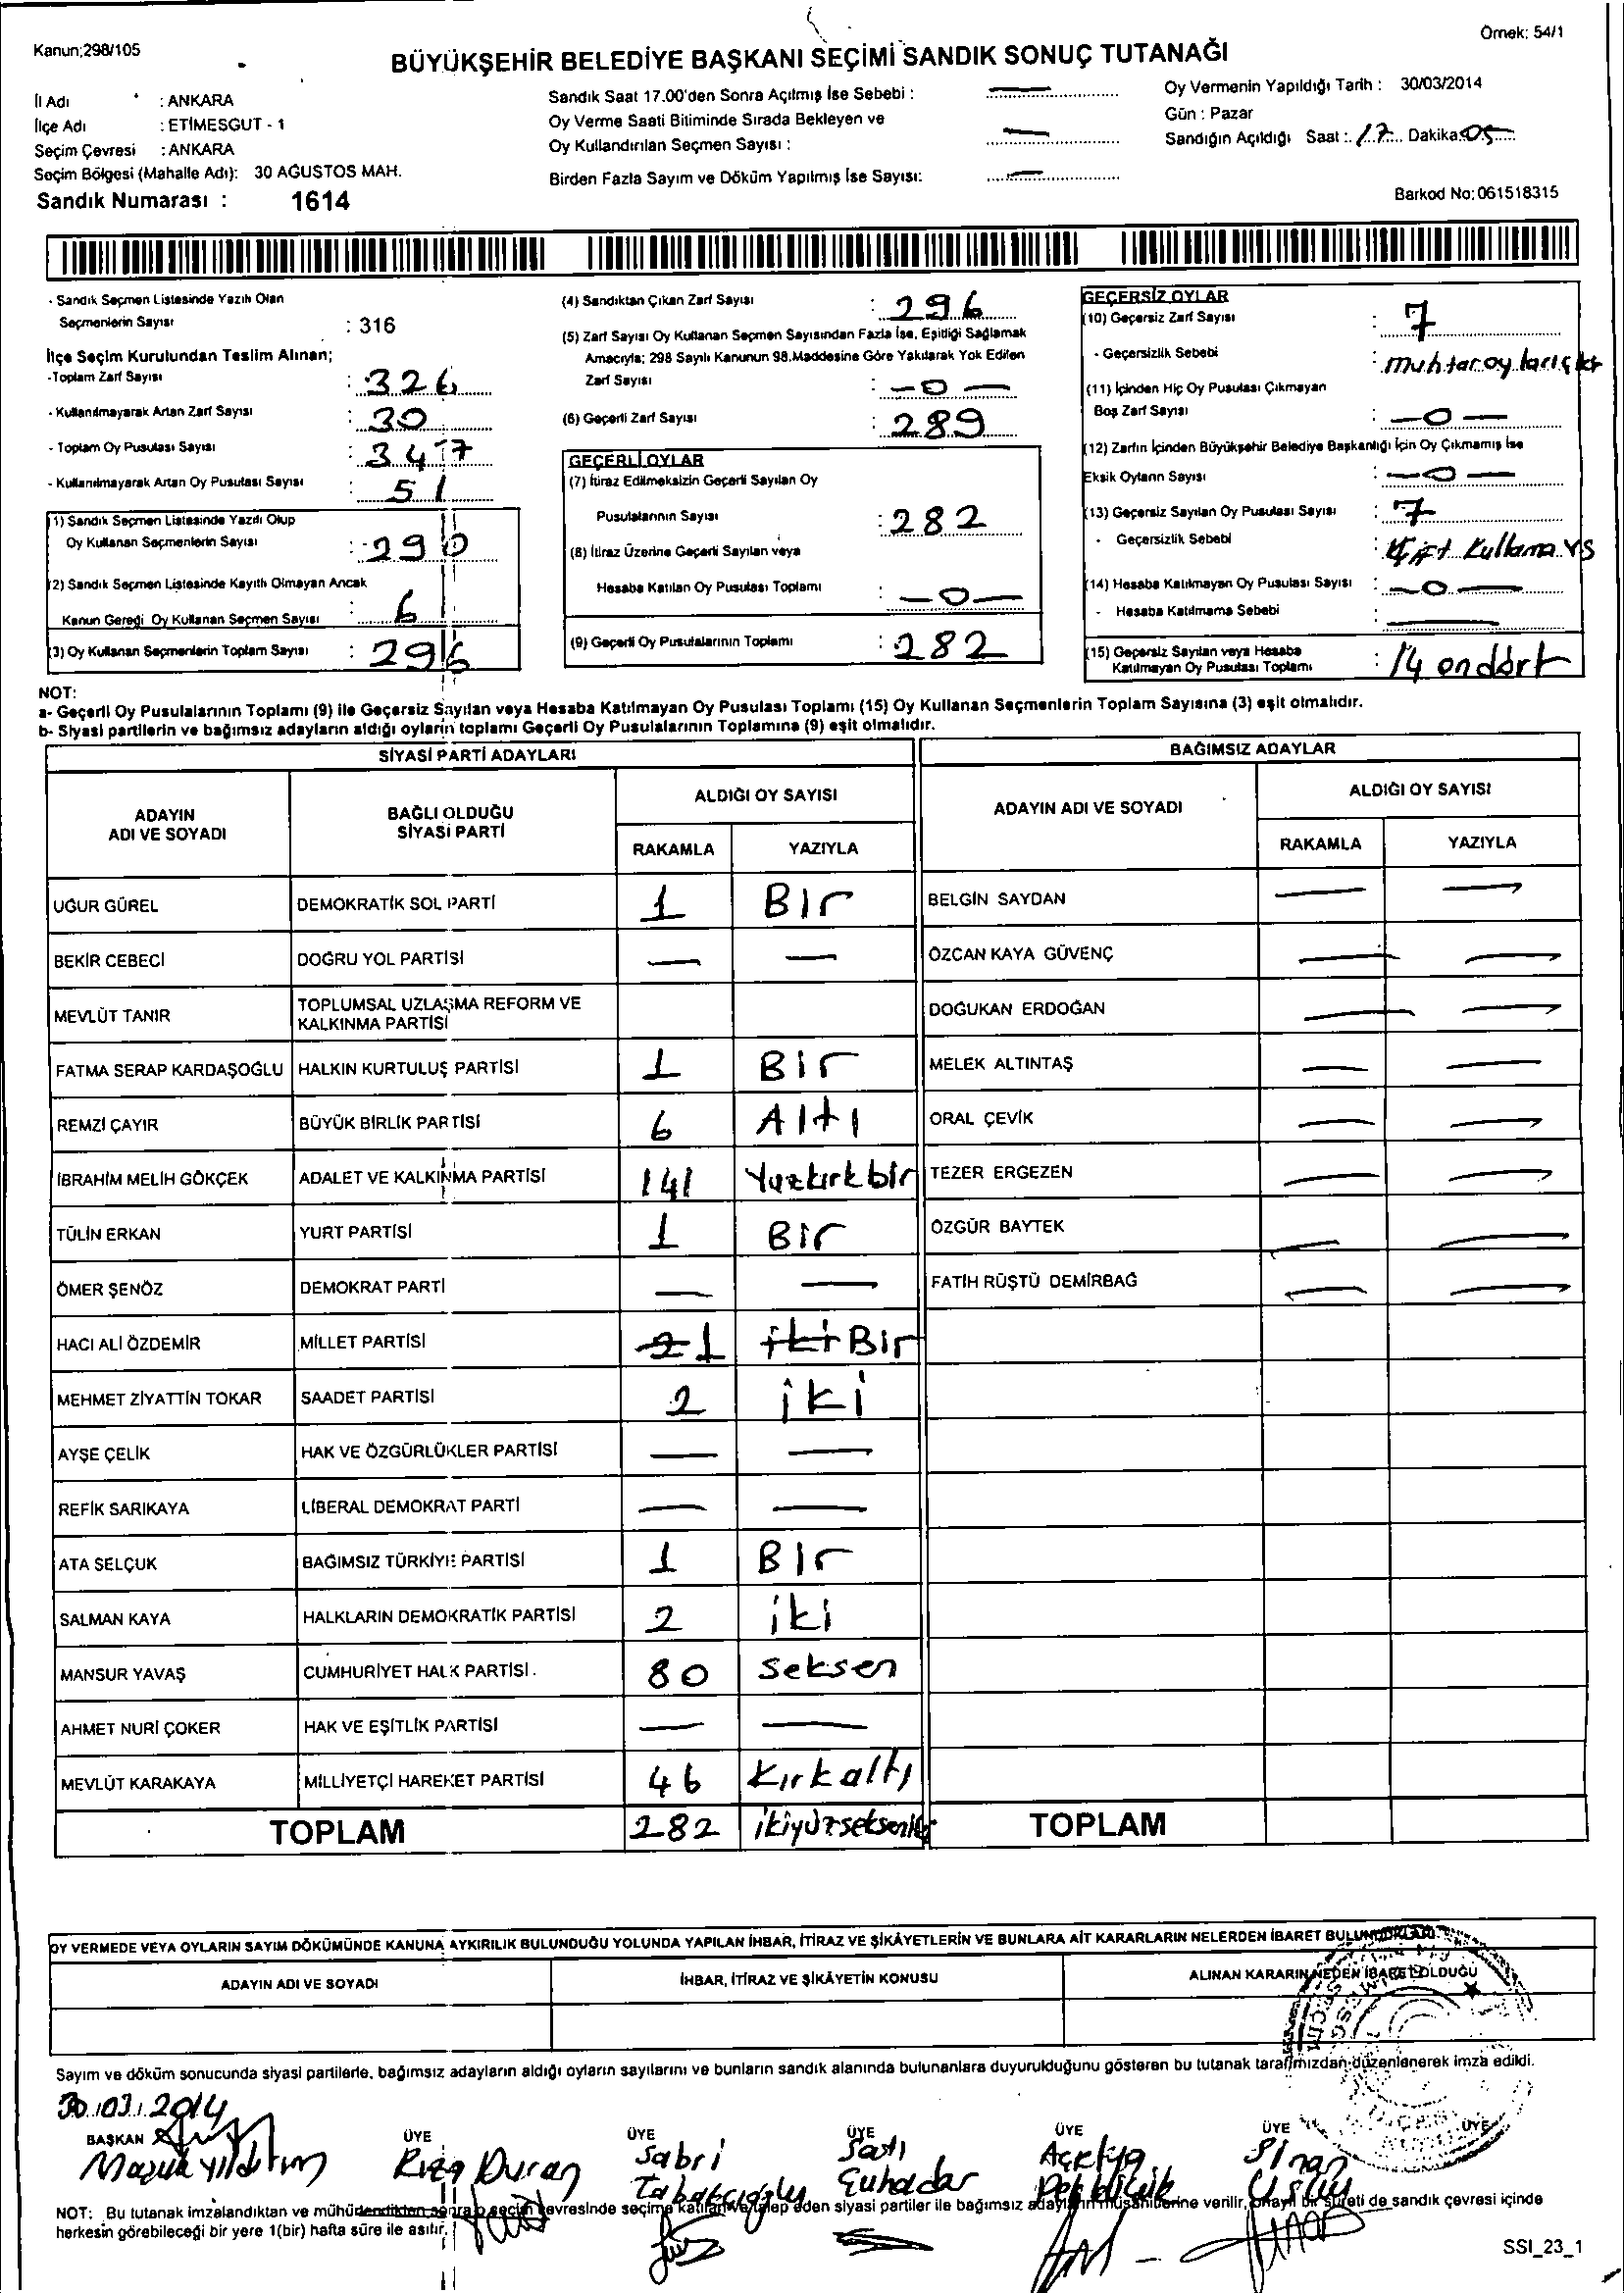 Kanun;298/105
Örnek: 54/1
BÜYÜKŞEHİR BELEDİYE BAŞKANI SEÇİMİ SANDIK SONUÇ TUTANAĞI
İl Adı : ANKARA
İlçe Adı : ETİMESGUT - 1
Seçim Çevresi : ANKARA
Seçim Bölgesi (Mahalle Adı): 30 AĞUSTOS MAH.
Sandık Numarası : 1614
Sandık Saat 17.00'den Sonra Açılmış İse Sebebi : —
Oy Verme Saati Bitiminde Sırada Bekleyen ve
Oy Kullandırılan Seçmen Sayısı : —
Birden Fazla Sayım ve Döküm Yapılmış İse Sayısı: —
Oy Vermenin Yapıldığı Tarih : 30/03/2014
Gün : Pazar
Sandığın Açıldığı Saat : 17 Dakika 05
Barkod No: 061518315
- Sandık Seçmen Listesinde Yazılı Olan
Seçmenlerin Sayısı : 316
İlçe Seçim Kurulundan Teslim Alınan;
-Toplam Zarf Sayısı : 326
- Kullanılmayarak Artan Zarf Sayısı : 30
- Toplam Oy Pusulası Sayısı : 347
- Kullanılmayarak Artan Oy Pusulası Sayısı : 51
(1) Sandık Seçmen Listesinde Yazılı Olup
Oy Kullanan Seçmenlerin Sayısı : 290
(2) Sandık Seçmen Listesinde Kayıtlı Olmayan Ancak
Kanun Gereği Oy Kullanan Seçmen Sayısı : 6
(3) Oy Kullanan Seçmenlerin Toplam Sayısı : 296
(4) Sandıktan Çıkan Zarf Sayısı : 296
(5) Zarf Sayısı Oy Kullanan Seçmen Sayısından Fazla İse, Eşitliği Sağlamak
Amacıyla; 298 Sayılı Kanunun 98.Maddesine Göre Yakılarak Yok Edilen
Zarf Sayısı : -0-
(6) Geçerli Zarf Sayısı : 289
GEÇERLİ OYLAR
(7) İtiraz Edilmeksizin Geçerli Sayılan Oy
Pusulalarının Sayısı : 282
(8) İtiraz Üzerine Geçerli Sayılan veya
Hesaba Katılan Oy Pusulası Toplamı : -0-
(9) Geçerli Oy Pusulalarının Toplamı : 282
GEÇERSİZ OYLAR
(10) Geçersiz Zarf Sayısı : 7
- Geçersizlik Sebebi : muhtar oyları çıktı
(11) İçinden Hiç Oy Pusulası Çıkmayan
Boş Zarf Sayısı : -0-
(12) Zarfın İçinden Büyükşehir Belediye Başkanlığı İçin Oy Çıkmamış İse
Eksik Oyların Sayısı : -0-
(13) Geçersiz Sayılan Oy Pusulası Sayısı : 7
- Geçersizlik Sebebi : Çift Kullama vs
(14) Hesaba Katılmayan Oy Pusulası Sayısı : -0-
- Hesaba Katılmama Sebebi : —
(15) Geçersiz Sayılan veya Hesaba
Katılmayan Oy Pusulası Toplamı : 14 ondört
NOT:
a- Geçerli Oy Pusulalarının Toplamı (9) ile Geçersiz Sayılan veya Hesaba Katılmayan Oy Pusulası Toplamı (15) Oy Kullanan Seçmenlerin Toplam Sayısına (3) eşit olmalıdır.
b- Siyasi partilerin ve bağımsız adayların aldığı oyların toplamı Geçerli Oy Pusulalarının Toplamına (9) eşit olmalıdır.
SİYASİ PARTİ ADAYLARI
ADAYIN ADI VE SOYADI | BAĞLI OLDUĞU SİYASİ PARTİ | ALDIĞI OY SAYISI RAKAMLA | YAZIYLA
UĞUR GÜREL DEMOKRATİK SOL PARTİ 1 Bir
BEKİR CEBECİ DOĞRU YOL PARTİSİ — —
MEVLÜT TANIR TOPLUMSAL UZLAŞMA REFORM VE KALKINMA PARTİSİ
FATMA SERAP KARDAŞOĞLU HALKIN KURTULUŞ PARTİSİ 1 Bir
REMZİ ÇAYIR BÜYÜK BİRLİK PARTİSİ 6 Altı
İBRAHİM MELİH GÖKÇEK ADALET VE KALKINMA PARTİSİ 141 Yüzkırkbir
TÜLİN ERKAN YURT PARTİSİ 1 Bir
ÖMER ŞENÖZ DEMOKRAT PARTİ — —
HACI ALİ ÖZDEMİR MİLLET PARTİSİ 2 1 iki Bir
MEHMET ZİYATTİN TOKAR SAADET PARTİSİ 2 iki
AYŞE ÇELİK HAK VE ÖZGÜRLÜKLER PARTİSİ — —
REFİK SARIKAYA LİBERAL DEMOKRAT PARTİ — —
ATA SELÇUK BAĞIMSIZ TÜRKİYE PARTİSİ 1 Bir
SALMAN KAYA HALKLARIN DEMOKRATİK PARTİSİ 2 iki
MANSUR YAVAŞ CUMHURİYET HALK PARTİSİ 80 Seksen
AHMET NURİ ÇOKER HAK VE EŞİTLİK PARTİSİ — —
MEVLÜT KARAKAYA MİLLİYETÇİ HAREKET PARTİSİ 46 Kırkaltı
TOPLAM 282 ikiyüzsekseniki
BAĞIMSIZ ADAYLAR
ADAYIN ADI VE SOYADI | ALDIĞI OY SAYISI RAKAMLA | YAZIYLA
BELGİN SAYDAN — —
ÖZCAN KAYA GÜVENÇ — —
DOĞUKAN ERDOĞAN — —
MELEK ALTINTAŞ — —
ORAL ÇEVİK — —
TEZER ERGEZEN — —
ÖZGÜR BAYTEK — —
FATİH RÜŞTÜ DEMİRBAĞ — —
TOPLAM
OY VERMEDE VEYA OYLARIN SAYIM DÖKÜMÜNDE KANUNA AYKIRILIK BULUNDUĞU YOLUNDA YAPILAN İHBAR, İTİRAZ VE ŞİKÂYETLERİN VE BUNLARA AİT KARARLARIN NELERDEN İBARET BULUNDUKLARI
ADAYIN ADI VE SOYADI | İHBAR, İTİRAZ VE ŞİKÂYETİN KONUSU | ALINAN KARARIN NEDEN İBARET OLDUĞU
Sayım ve döküm sonucunda siyasi partilerle, bağımsız adayların aldığı oyların sayılarını ve bunların sandık alanında bulunanlara duyurulduğunu gösteren bu tutanak tarafımızdan düzenlenerek imza edildi.
30.03.2014
BAŞKAN ÜYE ÜYE ÜYE ÜYE ÜYE ÜYE
Yıldırım
Rıza Duran
Sabri
Satı
Sinan
NOT: Bu tutanak imzalandıktan ve mühürlendikten sonra o seçim çevresinde seçime katılan ve talep eden siyasi partiler ile bağımsız adayların müşahitlerine verilir, onaylı bir sureti de sandık çevresi içinde
herkesin görebileceği bir yere 1(bir) hafta süre ile asılır.
SSI_23_1